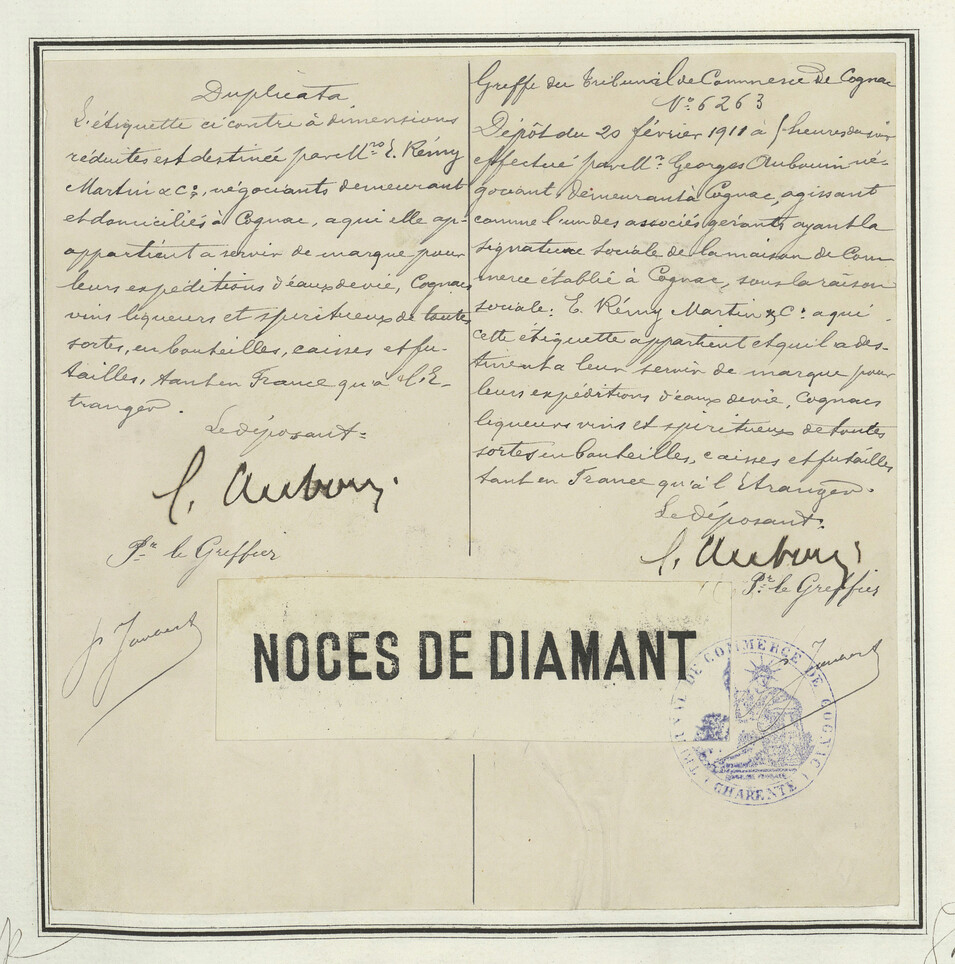 Duplicata
L'étiquette ci contre à dimensions
réduites est destinée par Mrs E. Rémy
Martin & Co, négociants demeurant
et domiciliés à Cognac, a qui elle ap-
appartient a servir de marque pour
leurs expéditions d'eaux devie, Cognacs
vins liqueurs et spiritueux de toutes
sortes, en bouteilles, caisses et fu-
tailles, tant en France qu'à l'E-
tranger.
Le déposant:
Pr le Greffier
Greffe du Tribunal de Commerce de Cognac
No 6263
Dépôt du 20 février 1911 à 5 heures du soir
effectué par Mr Georges Aubouin né-
gociant, demeurant à Cognac, agissant
comme l'un des associés gérants ayant la
signature sociale de la maison de Com
merce établie à Cognac, sous la raison
sociale: E. Rémy Martin & Co a qui
cette étiquette appartient et qu'il a des-
tinent a leur servir de marque pour
leurs expéditions d'eaux devie, Cognacs
liqueurs vins et spiritueux de toutes
sortes en bouteilles, caisses et futailles
tant en France qu'à l'Etranger.
Le déposant:
Pr le Greffier
NOCES DE DIAMANT
TRIBUNAL DE COMMERCE DE COGNAC
(CHARENTE)